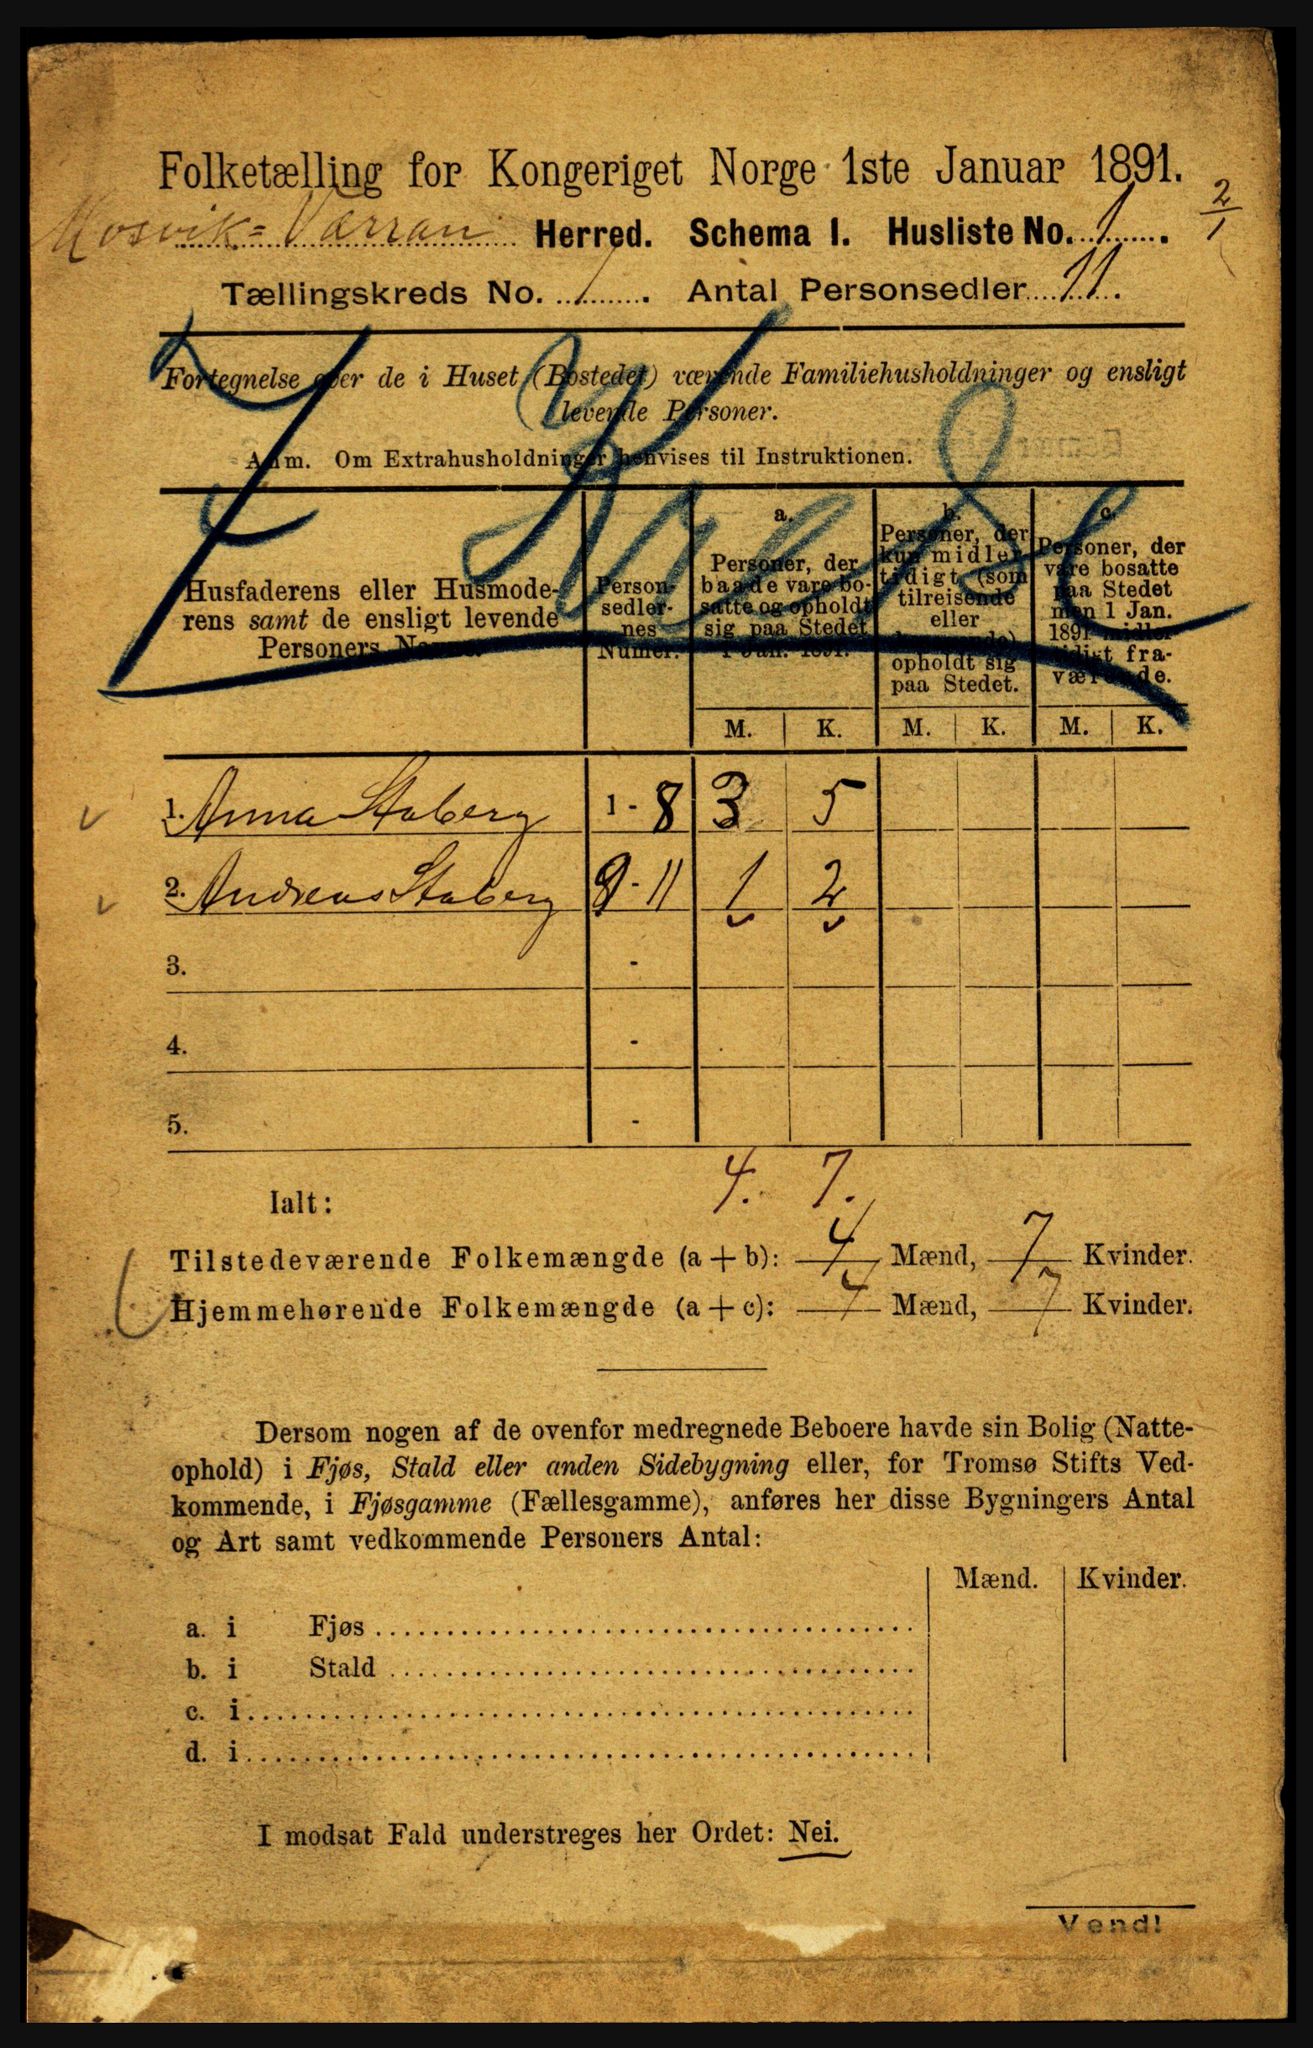 Folketælling for Kongeriget Norge 1ste Januar 1891.
Mosvik=Værran Herred. Schema I. Husliste No. 1. 2/1
Tællingskreds No. 1. Antal Personsedler 11.
Fortegnelse over de i Huset (Bostedet) værende Familiehusholdninger og ensligt
levende Personer.
Anm. Om Extrahusholdninger henvises til Instruktionen.
Husfaderens eller Husmode-
rens samt de ensligt levende
Personers Navne.
Person-
sedler-
nes
Numer.
a.
Personer, der
baade vare bo-
satte og opholdt
sig paa Stedet
1 Jan. 1891.
b.
Personer, der
kun midler-
tidigt (som
tilreisende
eller
opholdt sig
paa Stedet.
c.
Personer, der
vare bosatte
paa Stedet
men 1 Jan.
1891 midler-
tidigt fra-
værende.
M. K. M. K. M. K.
1. Anna Staberg 1 - 8 3 5
2. Andreas Staberg 9 - 11 1 2
3. -
4. -
5. -
Ialt: 4. 7.
Tilstedeværende Folkemængde (a + b): 4 Mænd, 7 Kvinder.
Hjemmehørende Folkemængde (a + c): 4 Mænd, 7 Kvinder.
Dersom nogen af de ovenfor medregnede Beboere havde sin Bolig (Natte-
ophold) i Fjøs, Stald eller anden Sidebygning eller, for Tromsø Stifts Ved-
kommende, i Fjøsgamme (Fællesgamme), anføres her disse Bygningers Antal
og Art samt vedkommende Personers Antal:
Mænd. Kvinder.
a. i Fjøs
b. i Stald
c. i
d. i
I modsat Fald understreges her Ordet: Nei.
Vend!